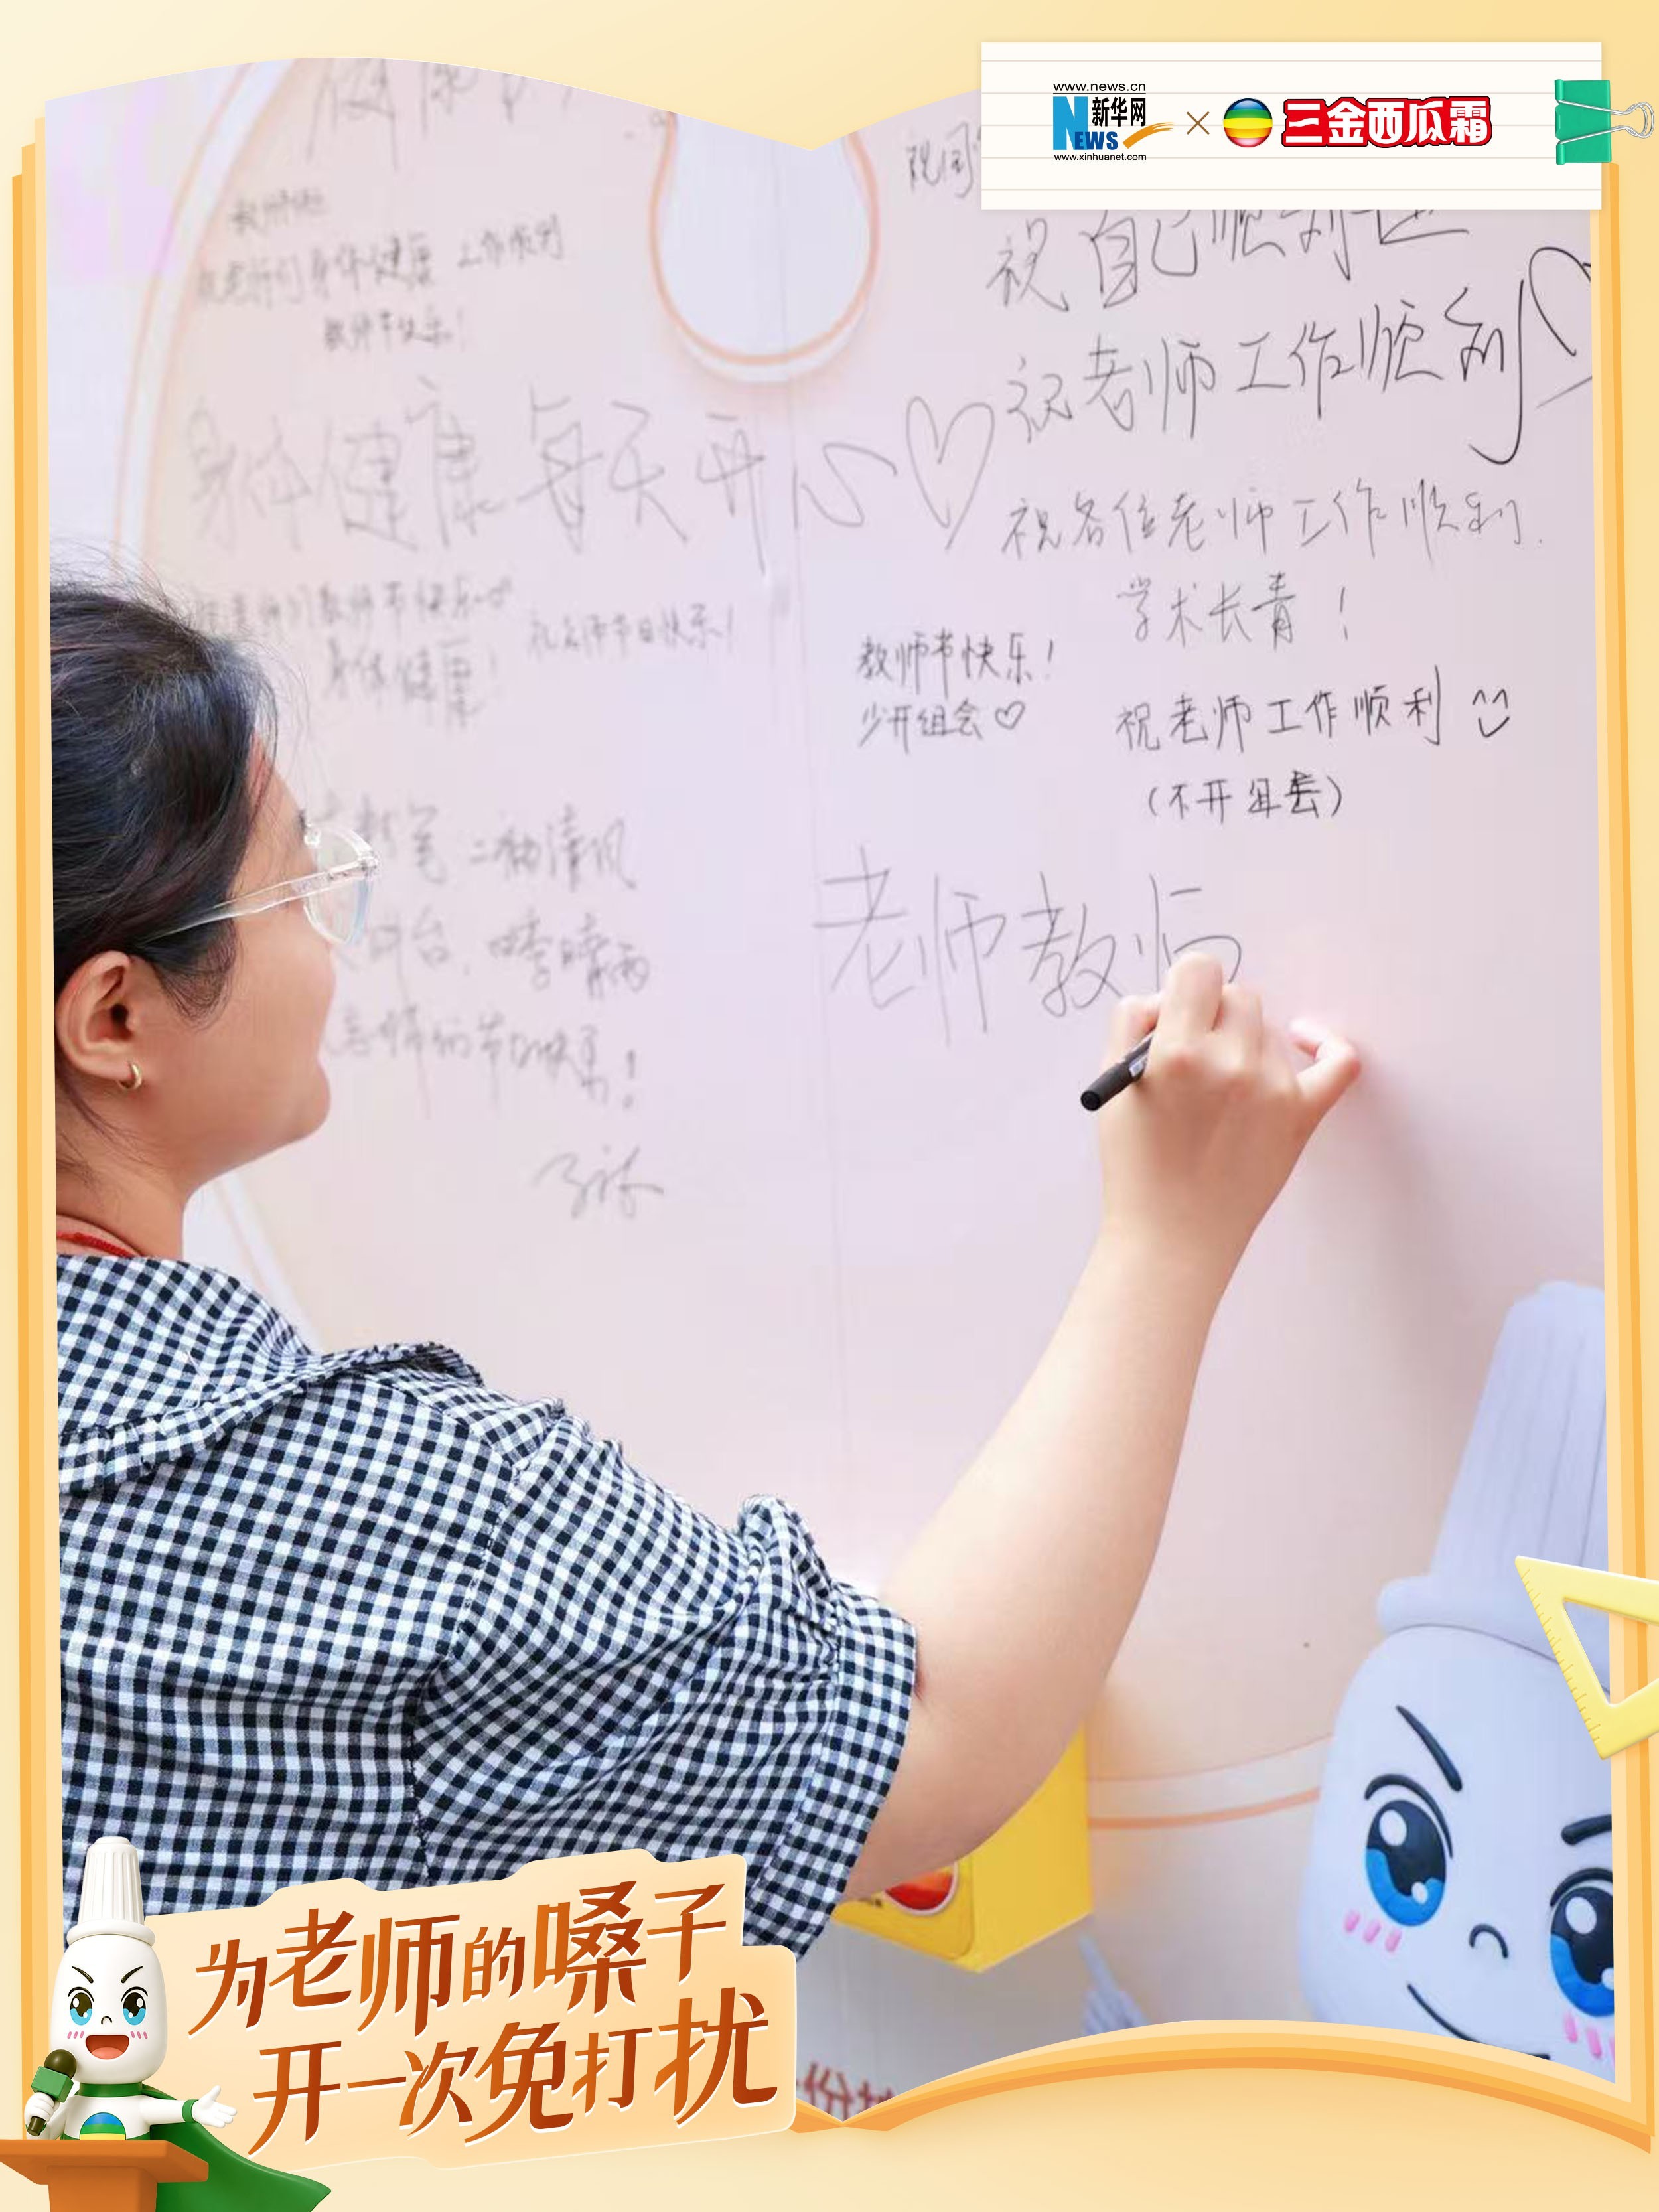 www.news.cn
NEWS 新华网
www.xinhuanet.com
×
三金西瓜霜
祝自己顺利
祝老师工作顺利
祝各位老师工作顺利.
学术长青！
教师节快乐！
少开组会♡
祝老师工作顺利
(不开组会)
老师教师
身体健康 每天开心♡
祝老师们身体健康 工作顺利
教师节快乐！
老师们教师节快乐
身体健康！
祝老师节日快乐！
为老师的嗓子
开一次免打扰